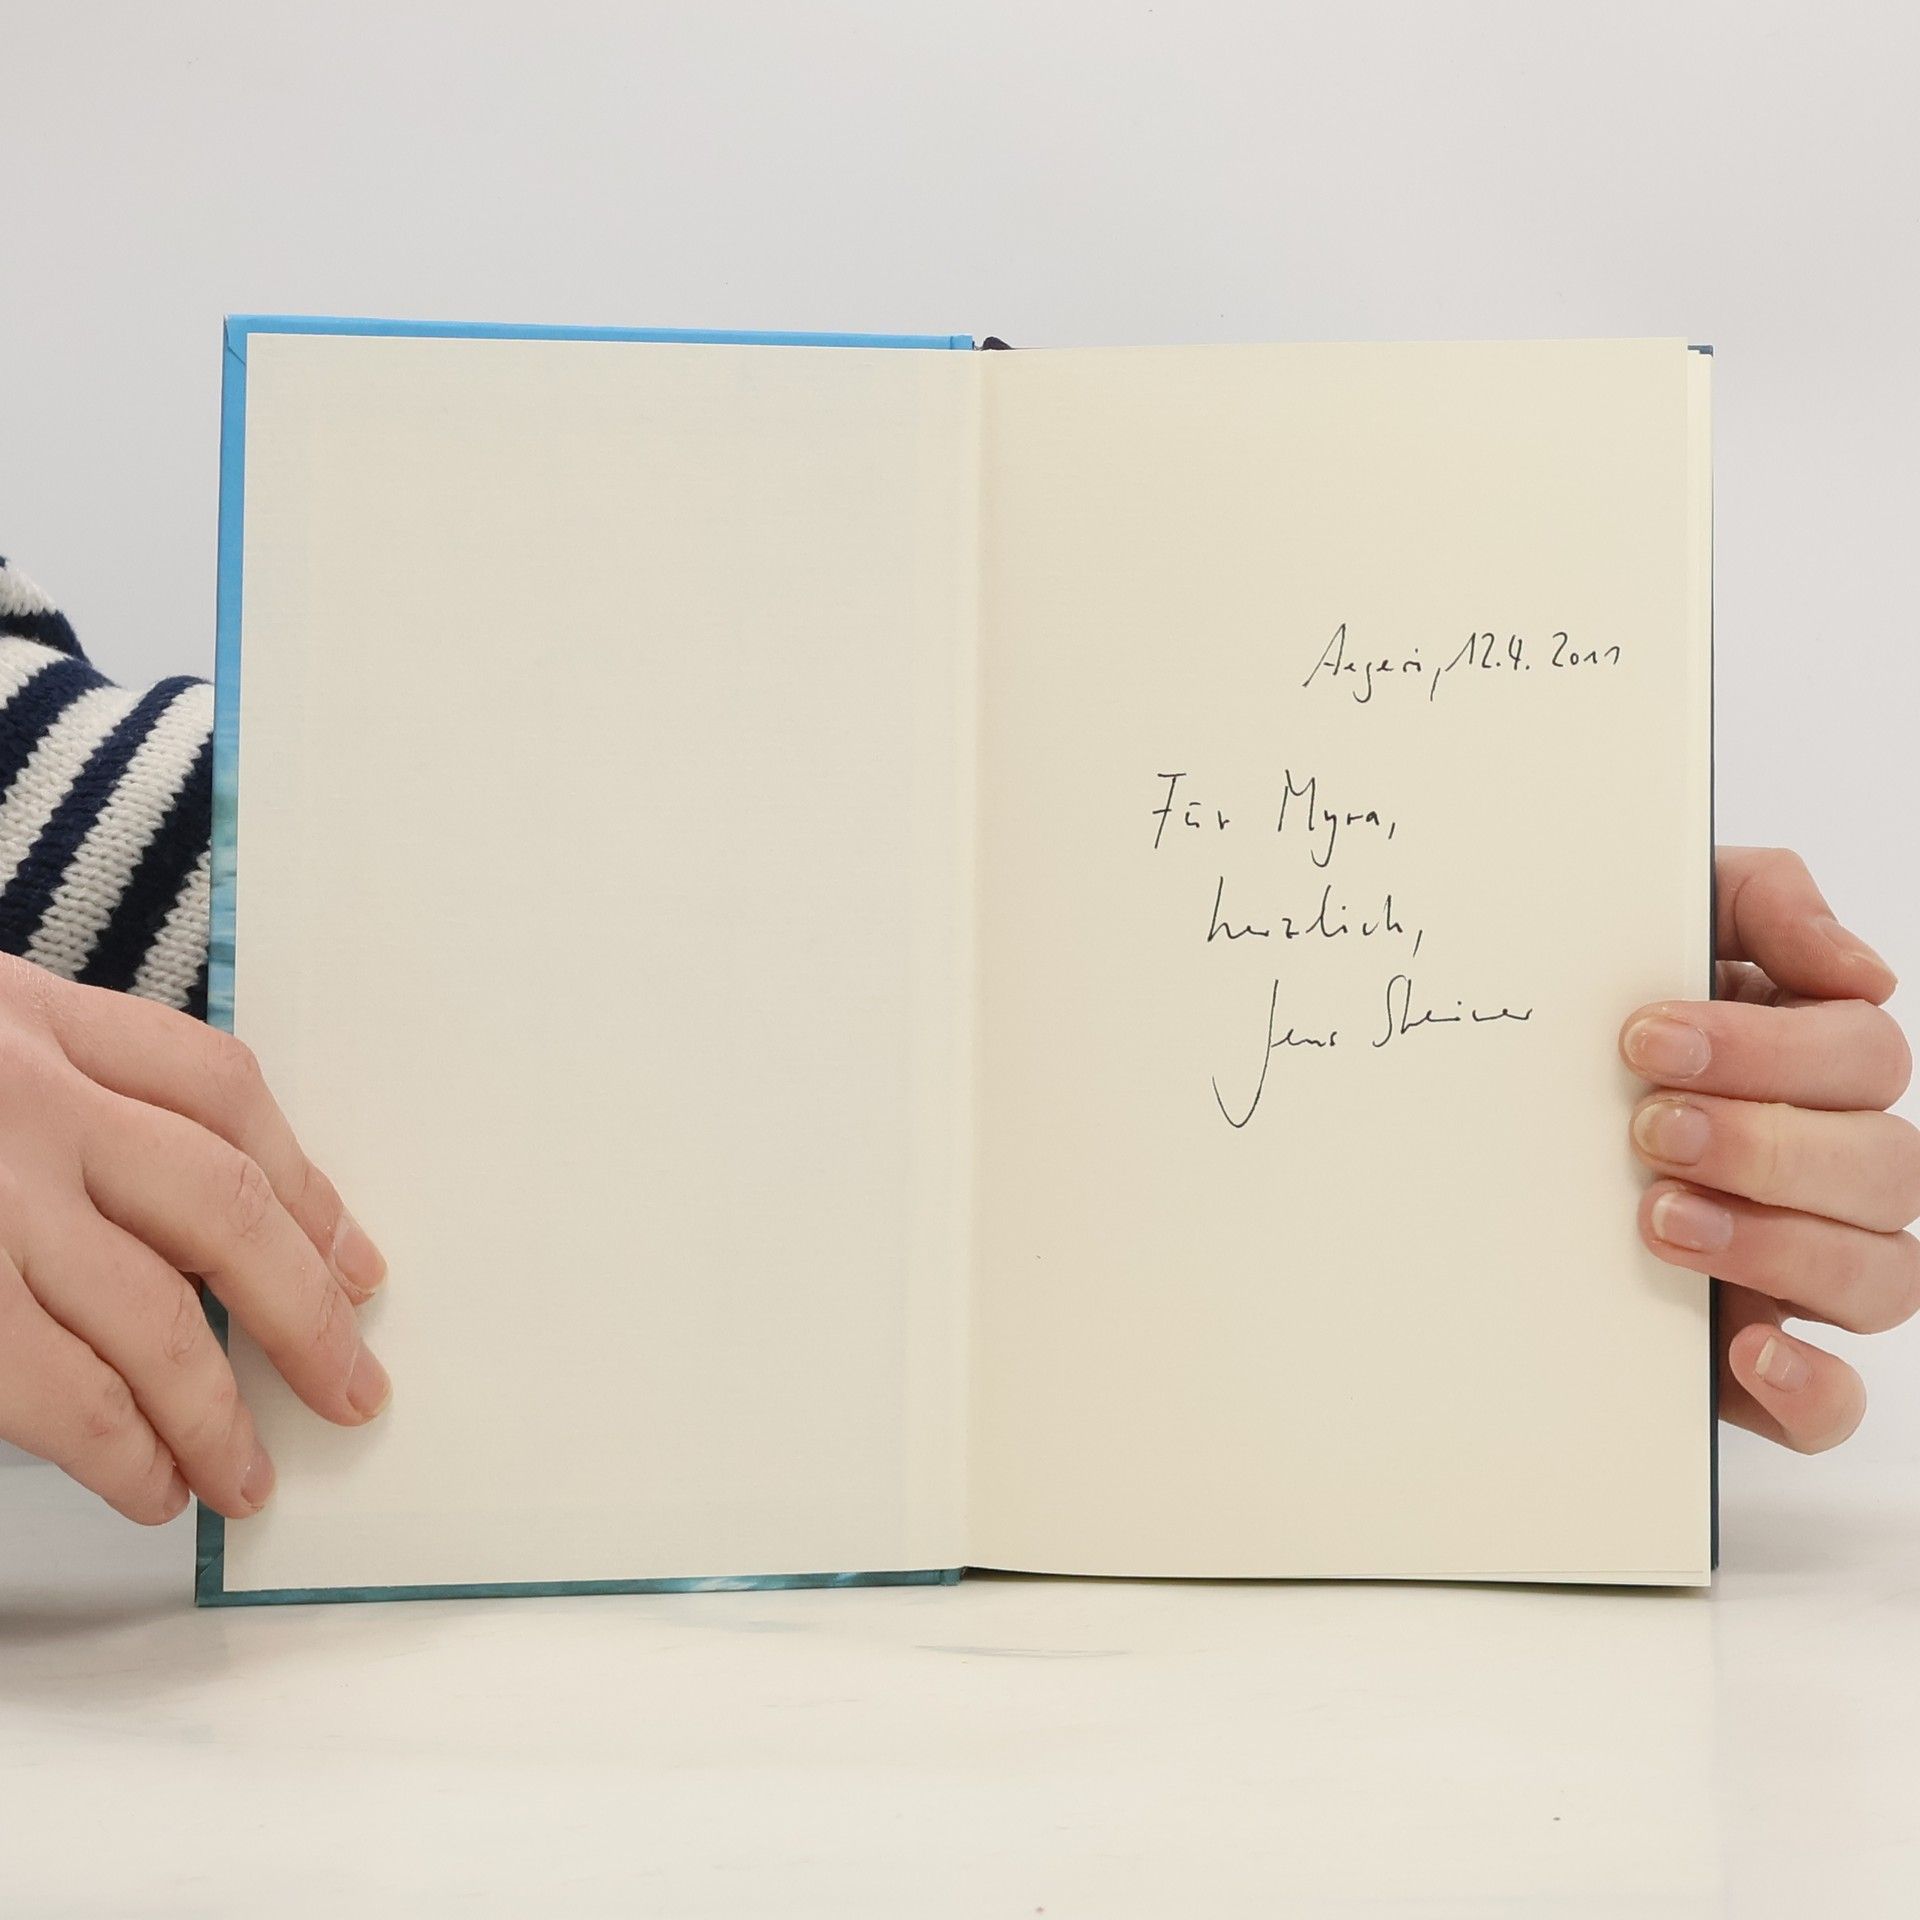 Aegeri, 12.4. 2011
Für Myra,
herzlich,
Jens Steiner